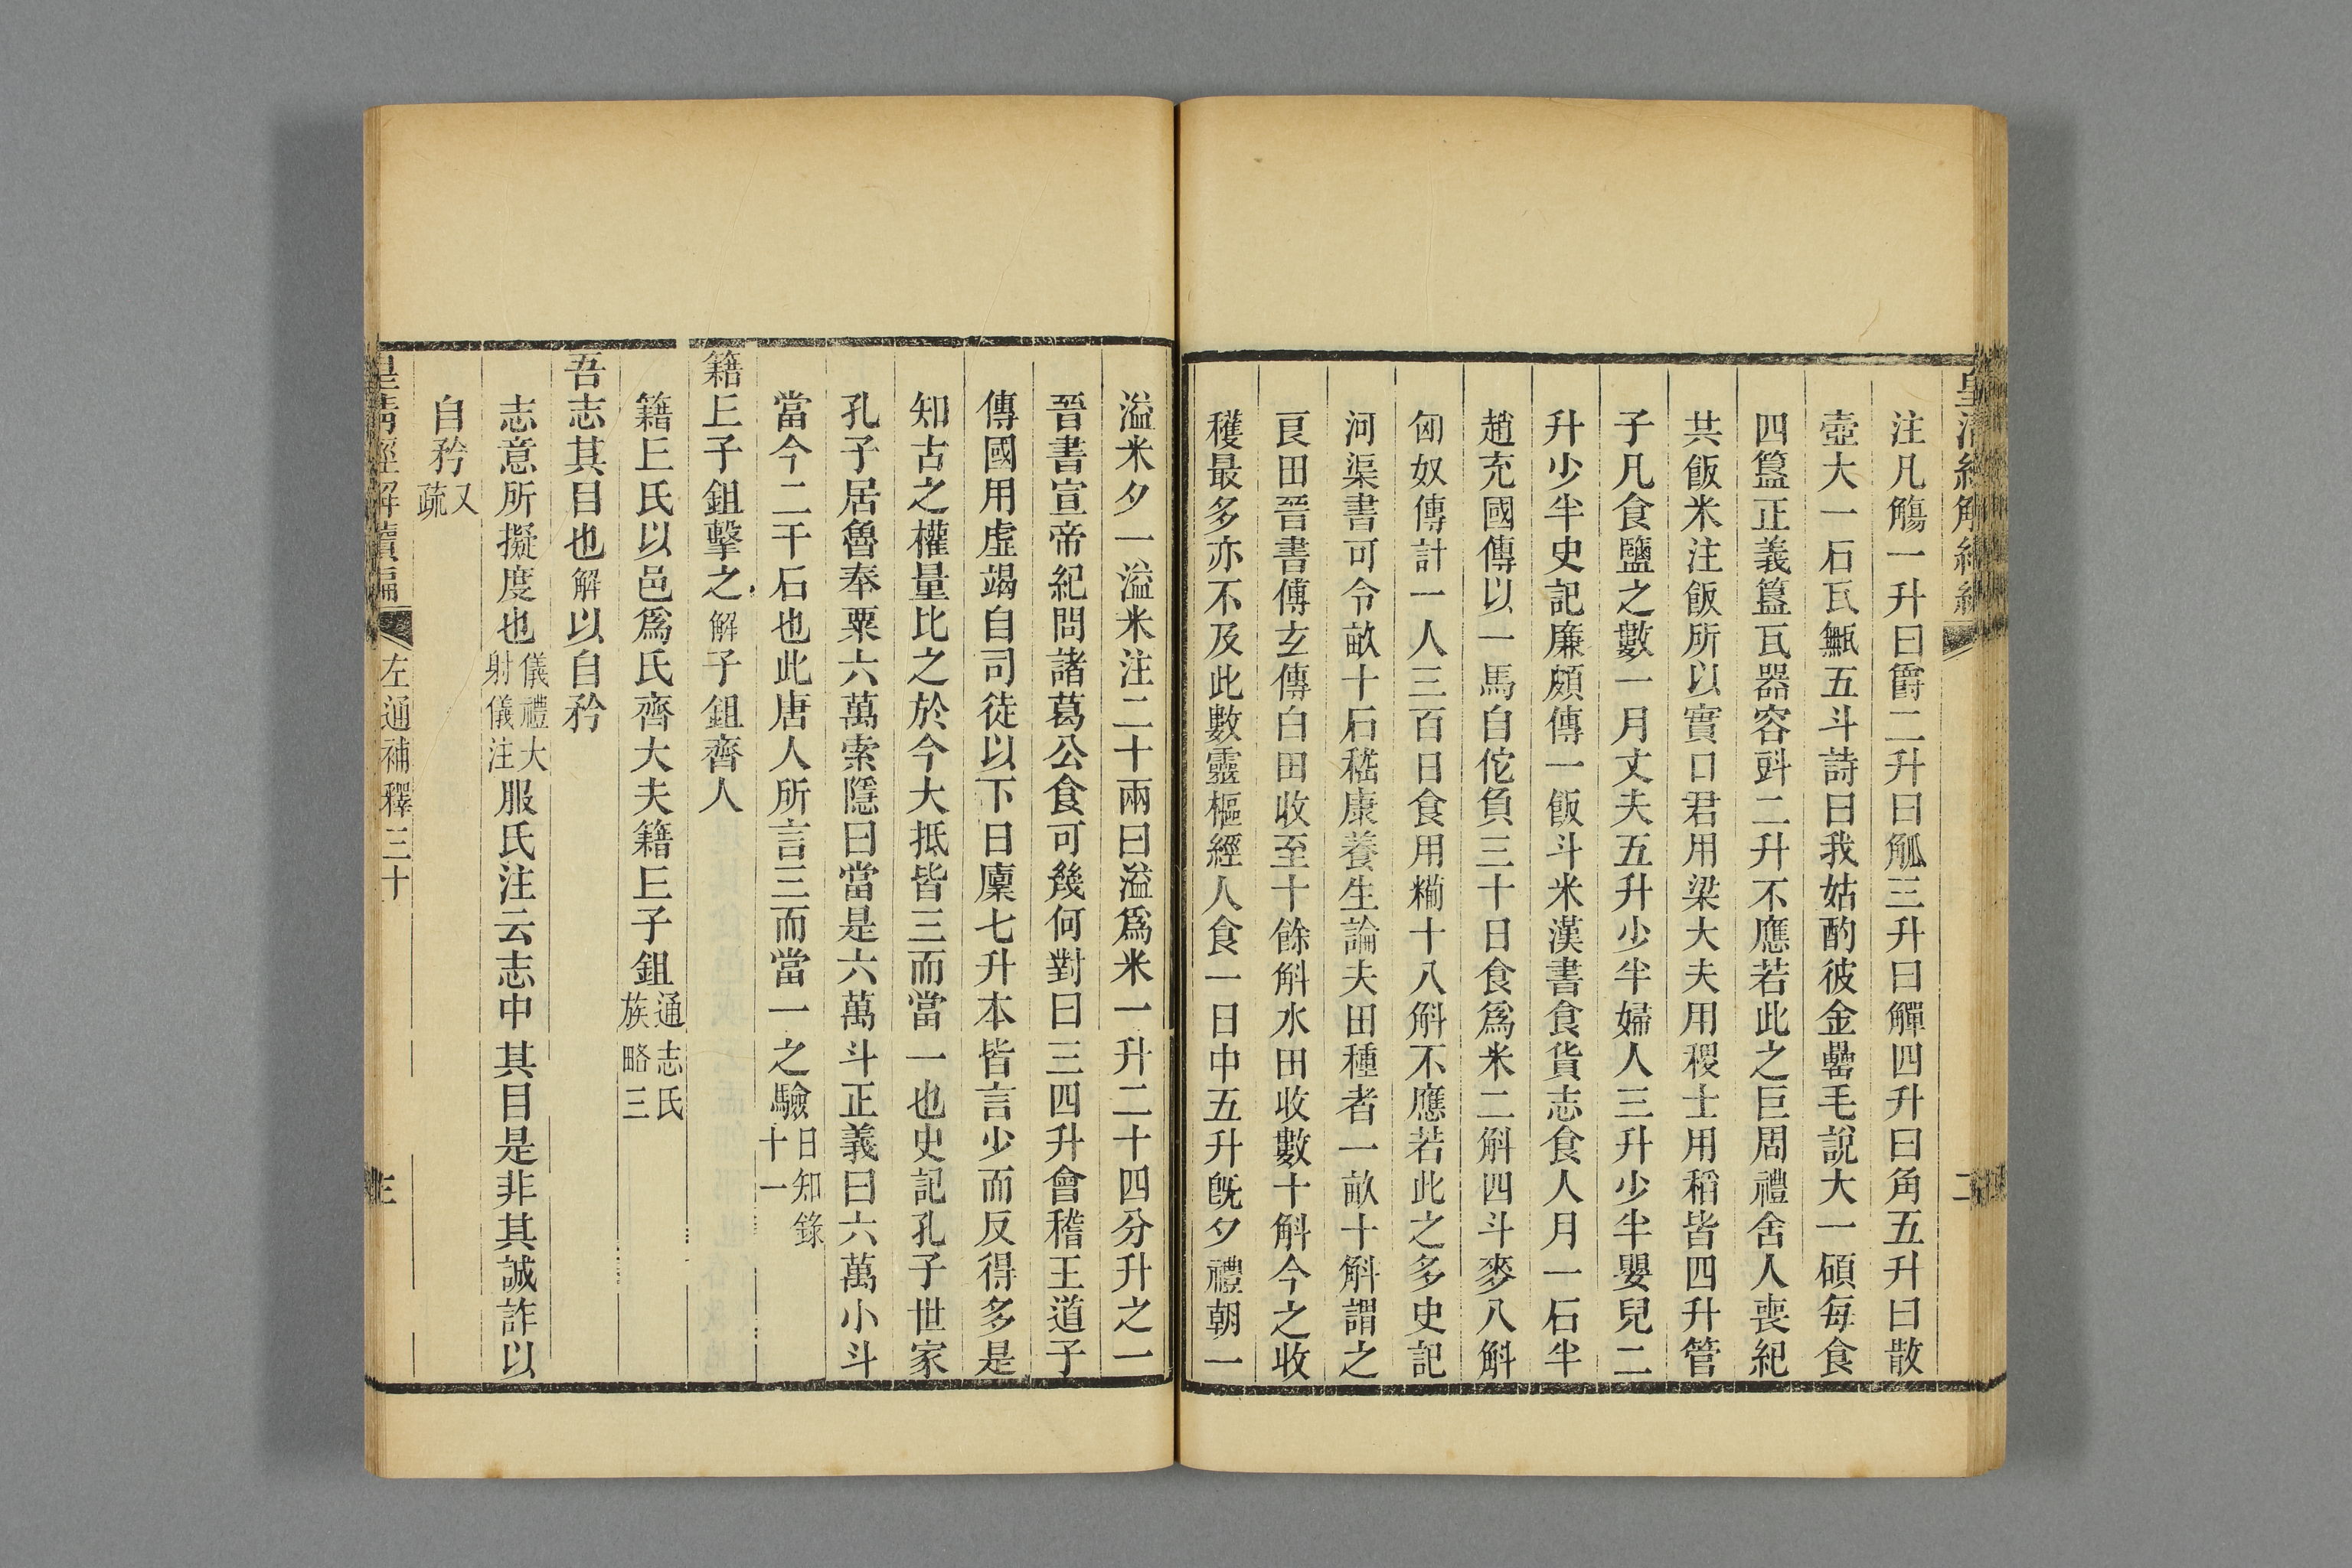 注凡觴一升曰爵二升曰觚三升曰觶四升曰角五升曰散
壺大一石瓦甒五斗詩曰我姑酌彼金罍毛說大一碩每食
四簋正義簋瓦器容㪷二升不應若此之巨周禮舍人喪紀
共飯米注飯所以實口君用梁大夫用稷士用稻皆四升管
子凡食鹽之數一月丈夫五升少半婦人三升少半嬰兒二
升少半史記廉頗傳一飯斗米漢書食貨志食人月一石半
趙充國傳以一馬自佗負三十日食爲米二斛四斗麥八斛
匈奴傳計一人三百日食用糒十八斛不應若此之多史記
河渠書可令畝十石嵇康養生論夫田種者一畝十斛謂之
良田晉書傅玄傳白田收至十餘斛水田收數十斛今之收
穫最多亦不及此數靈樞經人食一日中五升旣夕禮朝一
溢米夕一溢米注二十兩曰溢爲米一升二十四分升之一
晉書宣帝紀問諸葛公食可幾何對曰三四升會稽王道子
傳國用虛竭自司徒以下日廩七升本皆言少而反得多是
知古之權量比之於今大抵皆三而當一也史記孔子世家
孔子居魯奉粟六萬索隱曰當是六萬斗正義曰六萬小斗
當今二千石也此唐人所言三而當一之驗日知錄十一
籍丘子鉏擊之解子鉏齊人
籍丘氏以邑爲氏齊大夫籍丘子鉏通志氏族略三
吾志其目也解以自矜
志意所擬度也儀禮大射儀注服氏注云志中其目是非其誠詐以
自矜又疏
皇清經解續編 左通補釋三十